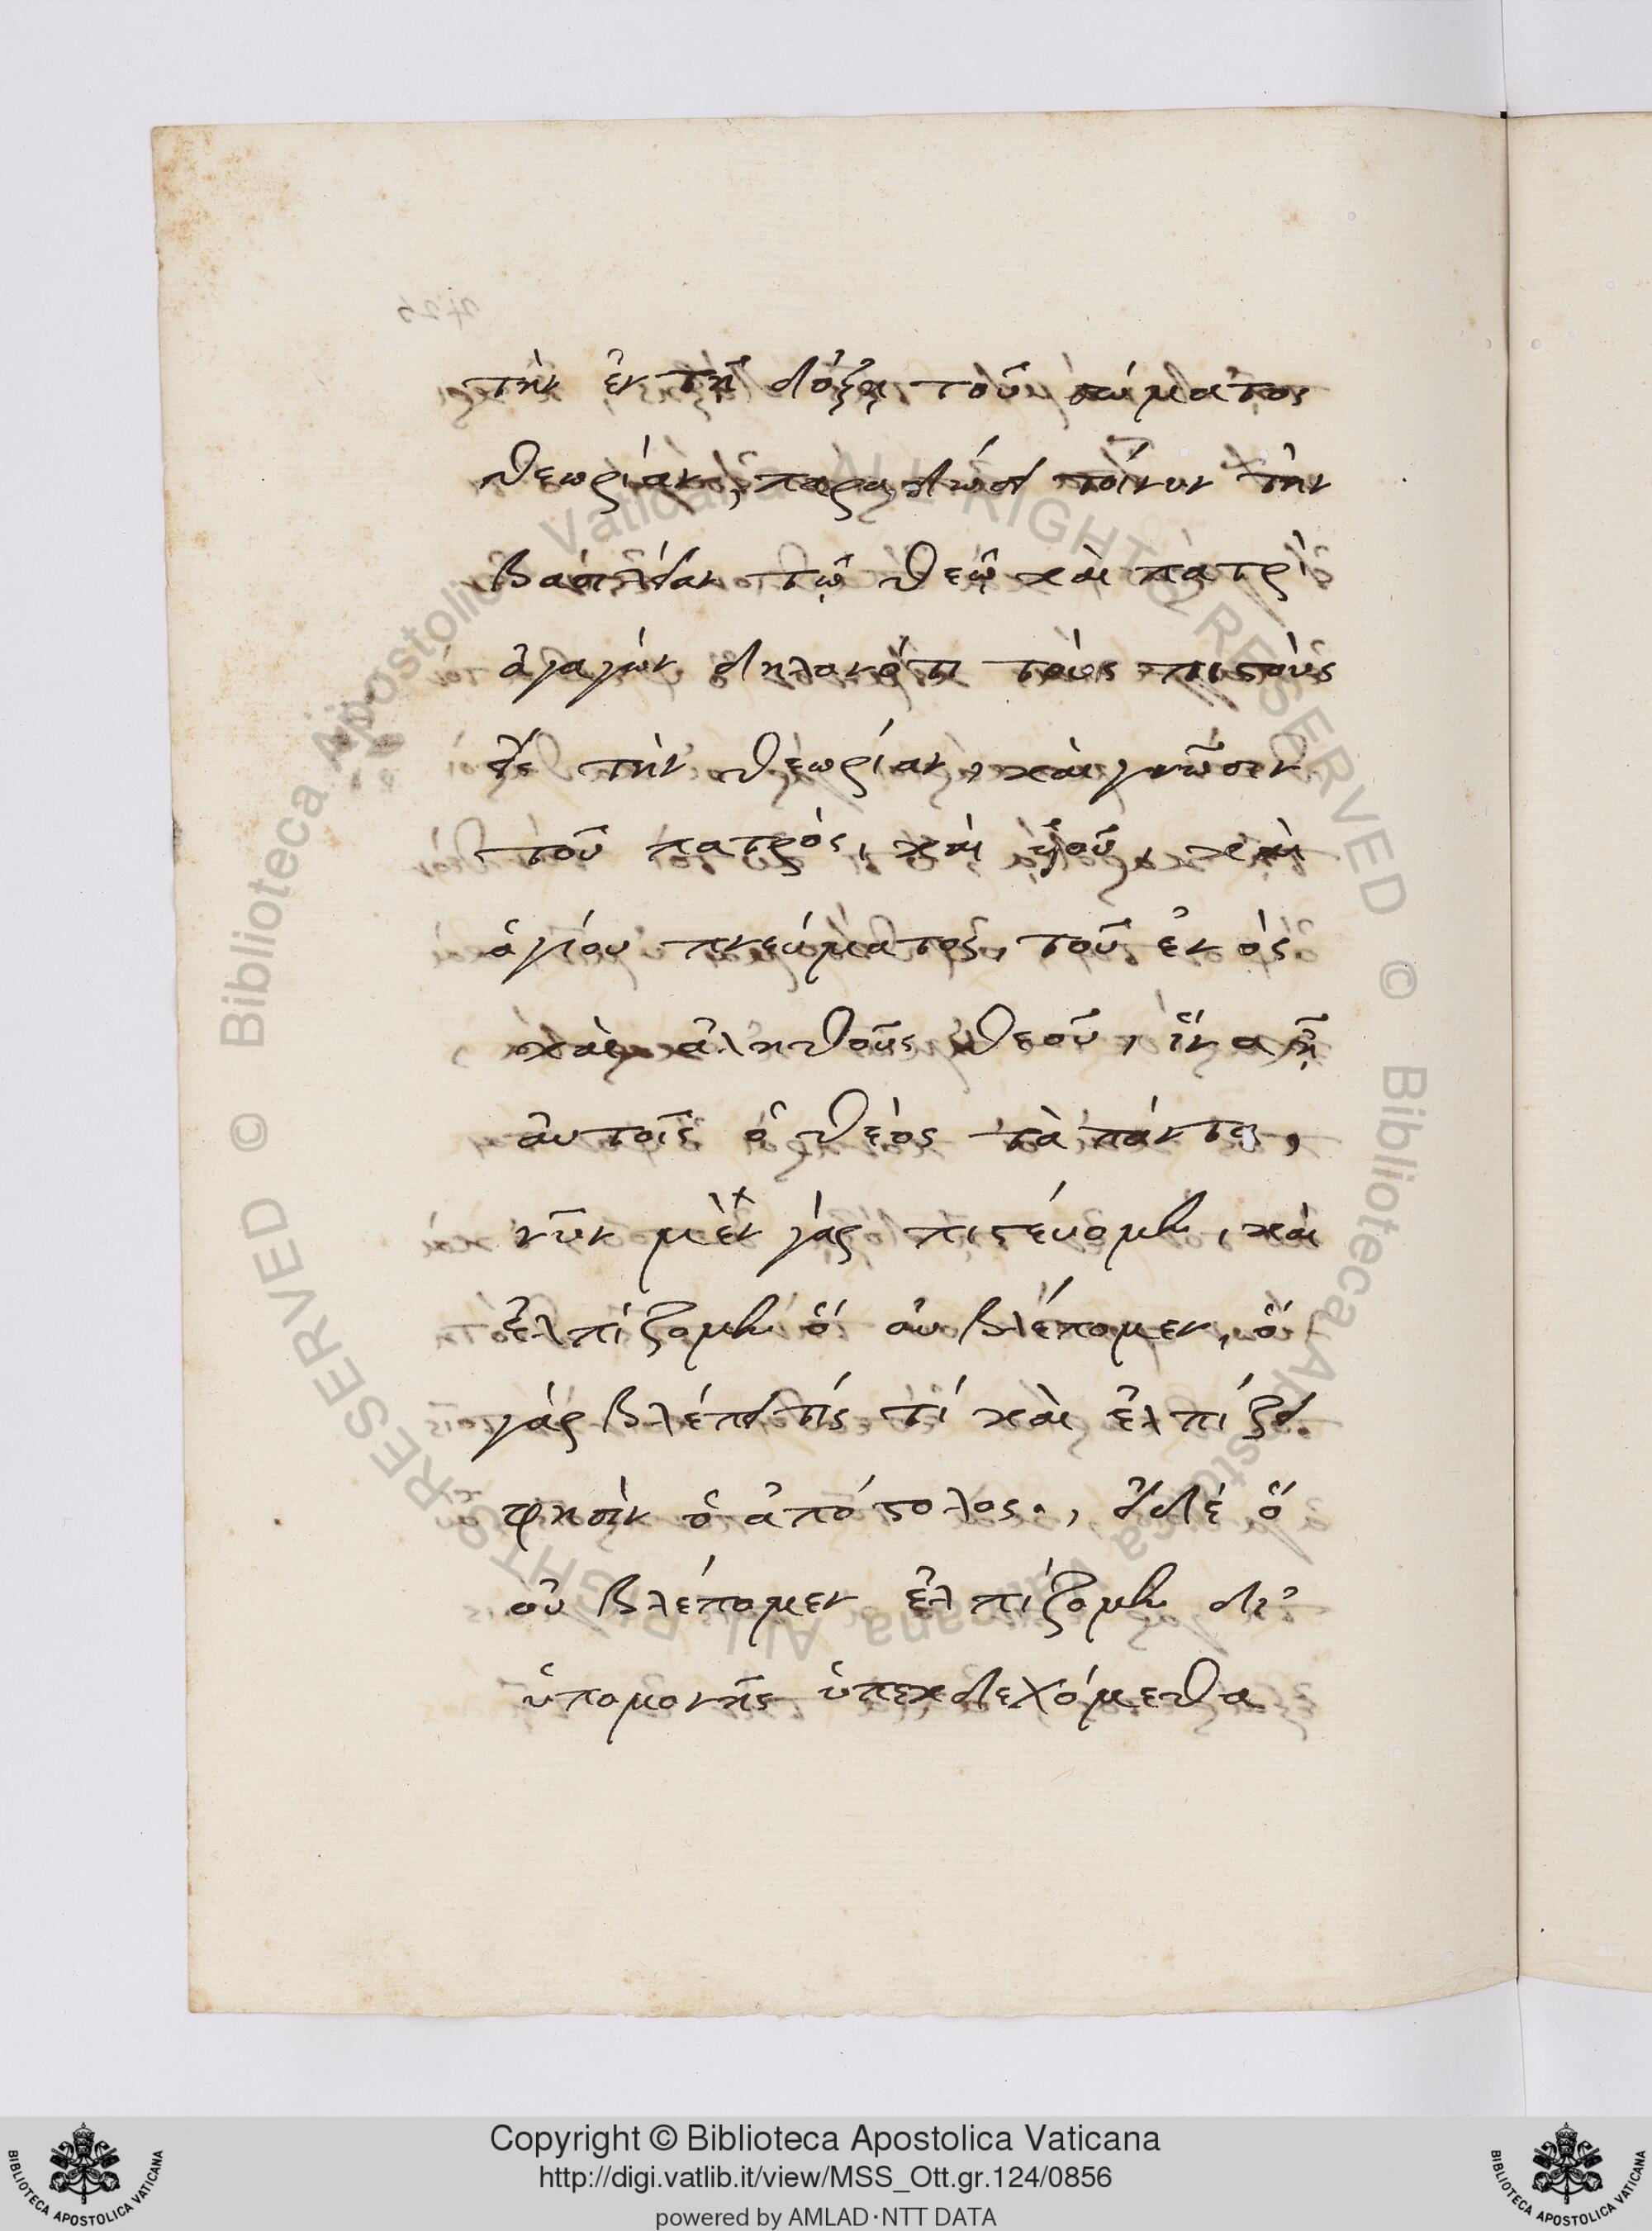 τὴν ἐν τῇ δόξῃ τοῦ σώματος
θεωρίαν, παραδώσει τοίνυν τὴν
βασιλείαν τῷ θεῷ καὶ πατρὶ
ἀγαγὼν δηλονότι τοὺς πιστοὺς
εἰς τὴν θεωρίαν, καὶ γνῶσιν
τοῦ πατρὸς, καὶ υἱοῦ, καὶ
ἁγίου πνεύματος, τοῦ ἑνὸς
καὶ ἀληθοῦς θεοῦ, ἵνα ᾖ
αὐτοῖς ὁ θεὸς τὰ πάντα,
νῦν μὲν γὰρ πιστεύομεν, καὶ
ἐλπίζομεν ὃ οὐ βλέπομεν, ὃ
γὰρ βλέπει τίς τί καὶ ἐλπίζει.
φησὶν ὁ ἀπόστολος., εἰ δὲ ὃ
οὐ βλέπομεν ἐλπίζομεν δι'
ὑπομονῆς ὑπεκδεχόμεθα
© Biblioteca Apostolica Vaticana ALL RIGHTS RESERVED
© Biblioteca Apostolica Vaticana ALL RIGHTS RESERVED
Copyright © Biblioteca Apostolica Vaticana
http://digi.vatlib.it/view/MSS_Ott.gr.124/0856
powered by AMLAD·NTT DATA
BIBLIOTECA APOSTOLICA VATICANA
BIBLIOTECA APOSTOLICA VATICANA